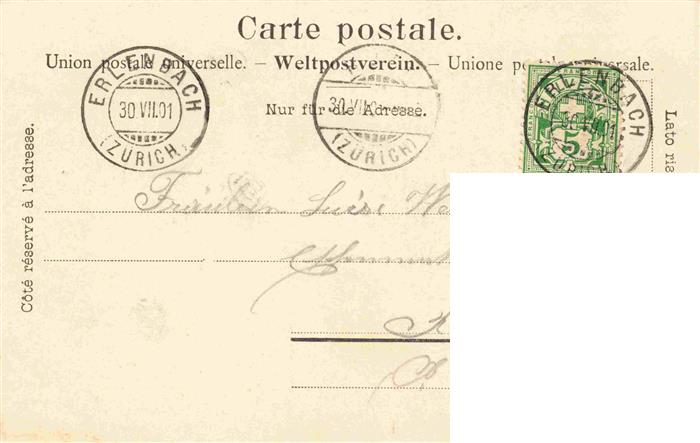 Carte postale.
Union postale universelle. – Weltpostverein. – Unione postale universale.
Nur für die Adresse.
Côté réservé à l'adresse.
Lato ris
ERLENBACH
30.VII.01
(ZÜRICH)
30.VII.0
(ZÜRICH)
ERLENBACH
5
Fräulein Luise We